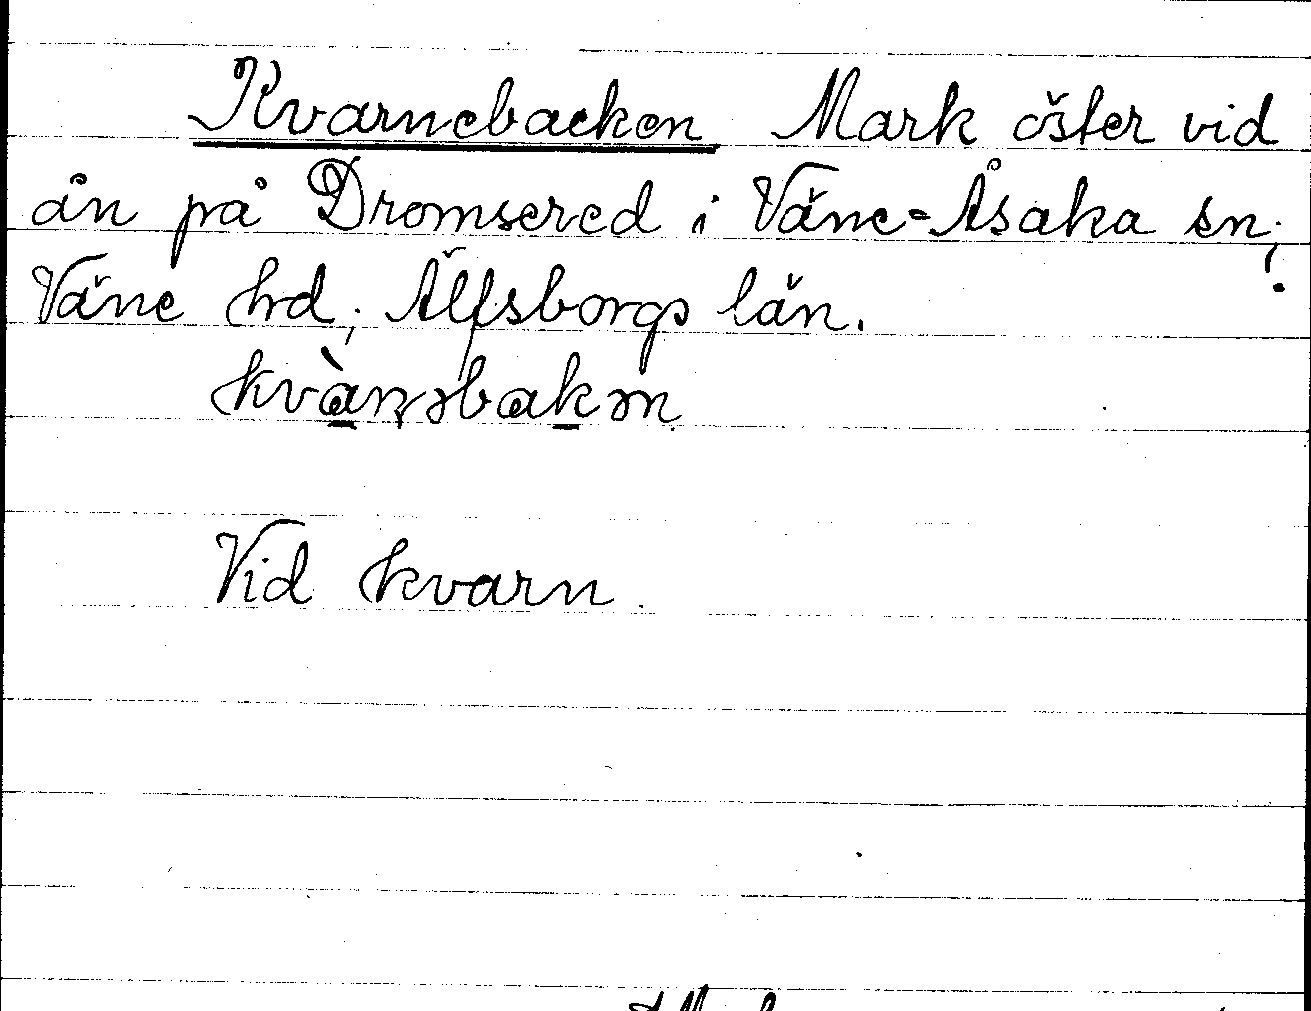 Kvarnebacken Mark öster vid
ån på Dromsered i Väne-Åsaka sn;
Väne hd; Älfsborgs län.
Vid kvarn.